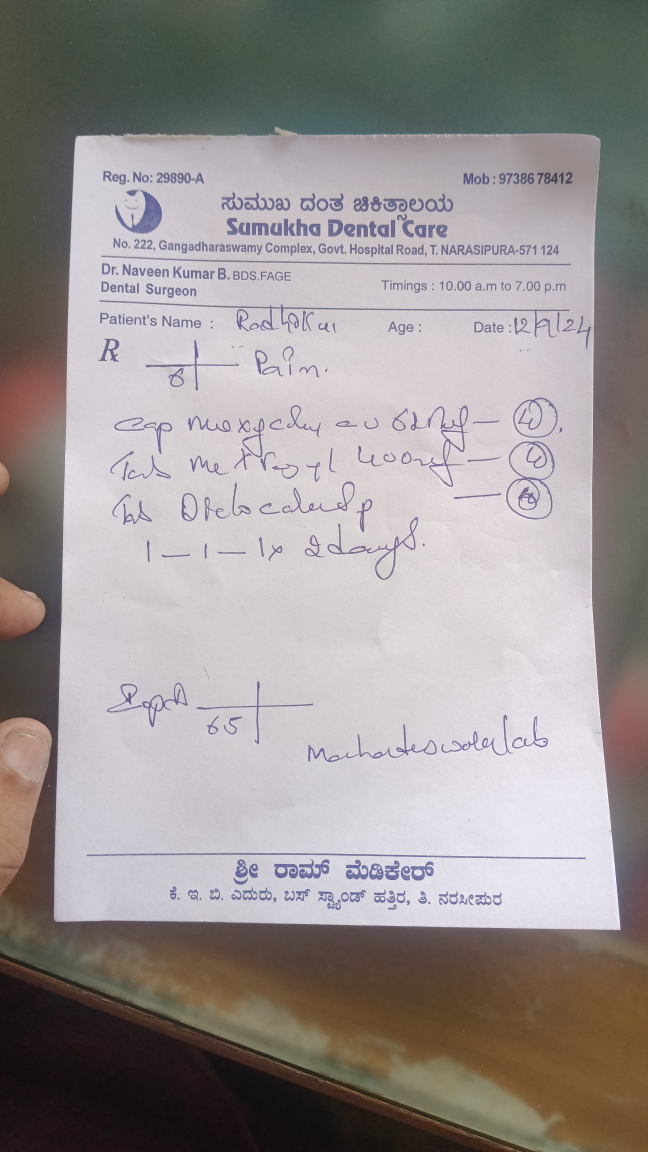 Reg. No: 29890-A
Mob : 97386 78412
ಸುಮುಖ ದಂತ ಚಿಕಿತ್ಸಾಲಯ
Sumukha Dental Care
No. 222, Gangadharaswamy Complex, Govt. Hospital Road, T. NARASIPURA-571 124
Dr. Naveen Kumar B. BDS.FAGE
Dental Surgeon
Timings : 10.00 a.m to 7.00 p.m
Patient's Name :
Age :
Date : 12/9/24
R
6
Pain.
Cap 625mg —
Tab Metrogyl 400mg —
Tab —
1 – 1 – 1 x 2 days.
65
lab
ಶ್ರೀ ರಾಮ್ ಮೆಡಿಕೇರ್
ಕೆ. ಇ. ಬಿ. ಎದುರು, ಬಸ್ ಸ್ಟ್ಯಾಂಡ್ ಹತ್ತಿರ, ತಿ. ನರಸೀಪುರ